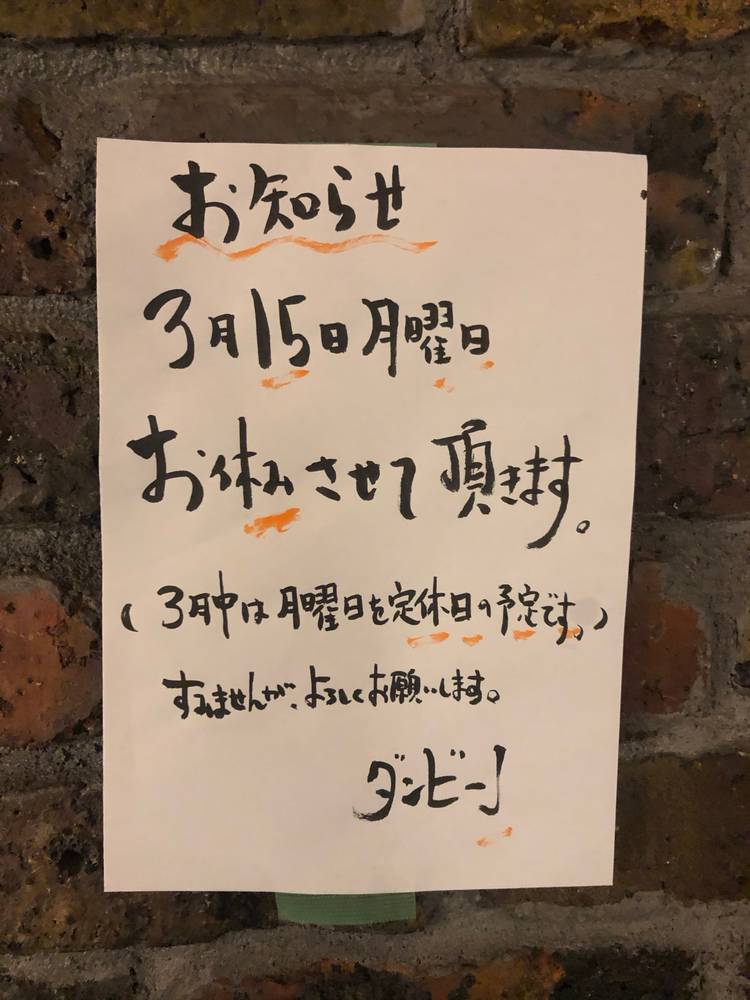 お知らせ
3月15日月曜日
お休みさせて頂きます。
(3月中は月曜日を定休日の予定です。)
すみませんが、よろしくお願いします。
ダンビーノ